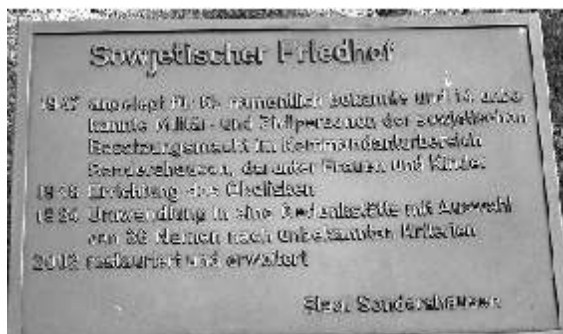 Sowjetischer Friedhof
1947 angelegt für namentlich bekannte und unbe
kannte Militär- und Zivilpersonen der sowjetischen
Besatzungsmacht im Kommandanturbereich
Sondershausen, darunter Frauen und Kinder
Errichtung des Obelisken
Umwandlung in eine Gedenkstätte mit Auswahl
von Namen nach unbekannten Kriterien
restauriert und erweitert
Sondershausen